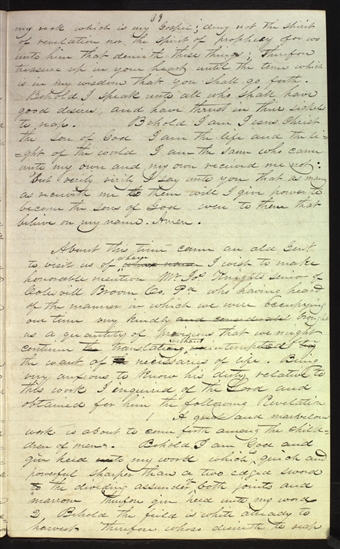 my rock which is my Gospel; deny not the spirit
of revelation nor the spirit of prophecy for wo
unto him that denieth these things; therefore
treasure up in your hearts until the time which
is in my wisdom that you shall go forth.
Behold I speak unto all who shall have
good desires, and have thrust in their sickles
to reap. Behold I am Jesus Christ
the Son of God I am the life and the li-
ght of the world I am the same who came
unto my own and my own received me not:
But verily verily I say unto you that as many
as receiveth me to them will I give power to
become the Sons of God even to them that
believe on my name. Amen.
About this time came an old Gent
to visit us of whose name I wish to make
honorable mention Mr. Jos Knight senior of
Colesvill Broom Co, who having heard
of the manner in which we were occupying
our time very kindly and considerate brought
us a quantity of provisions that we might
continue the translation, without interuption
the want of necessaries of life. Being
very anxious to know his duty relative to
this work I inquired of the Lord and
obtained for him the following Revelation
A great and marvelous
work is about to come forth among the child-
ren of men: Behold I am God and
give heed unto my word which quick and
powerful sharper than a two edged sword
to the dividing assunder both joints and
marrow therefore give heed unto my word
2 Behold the field is white already to
harvest therefore whoso desireth to reap